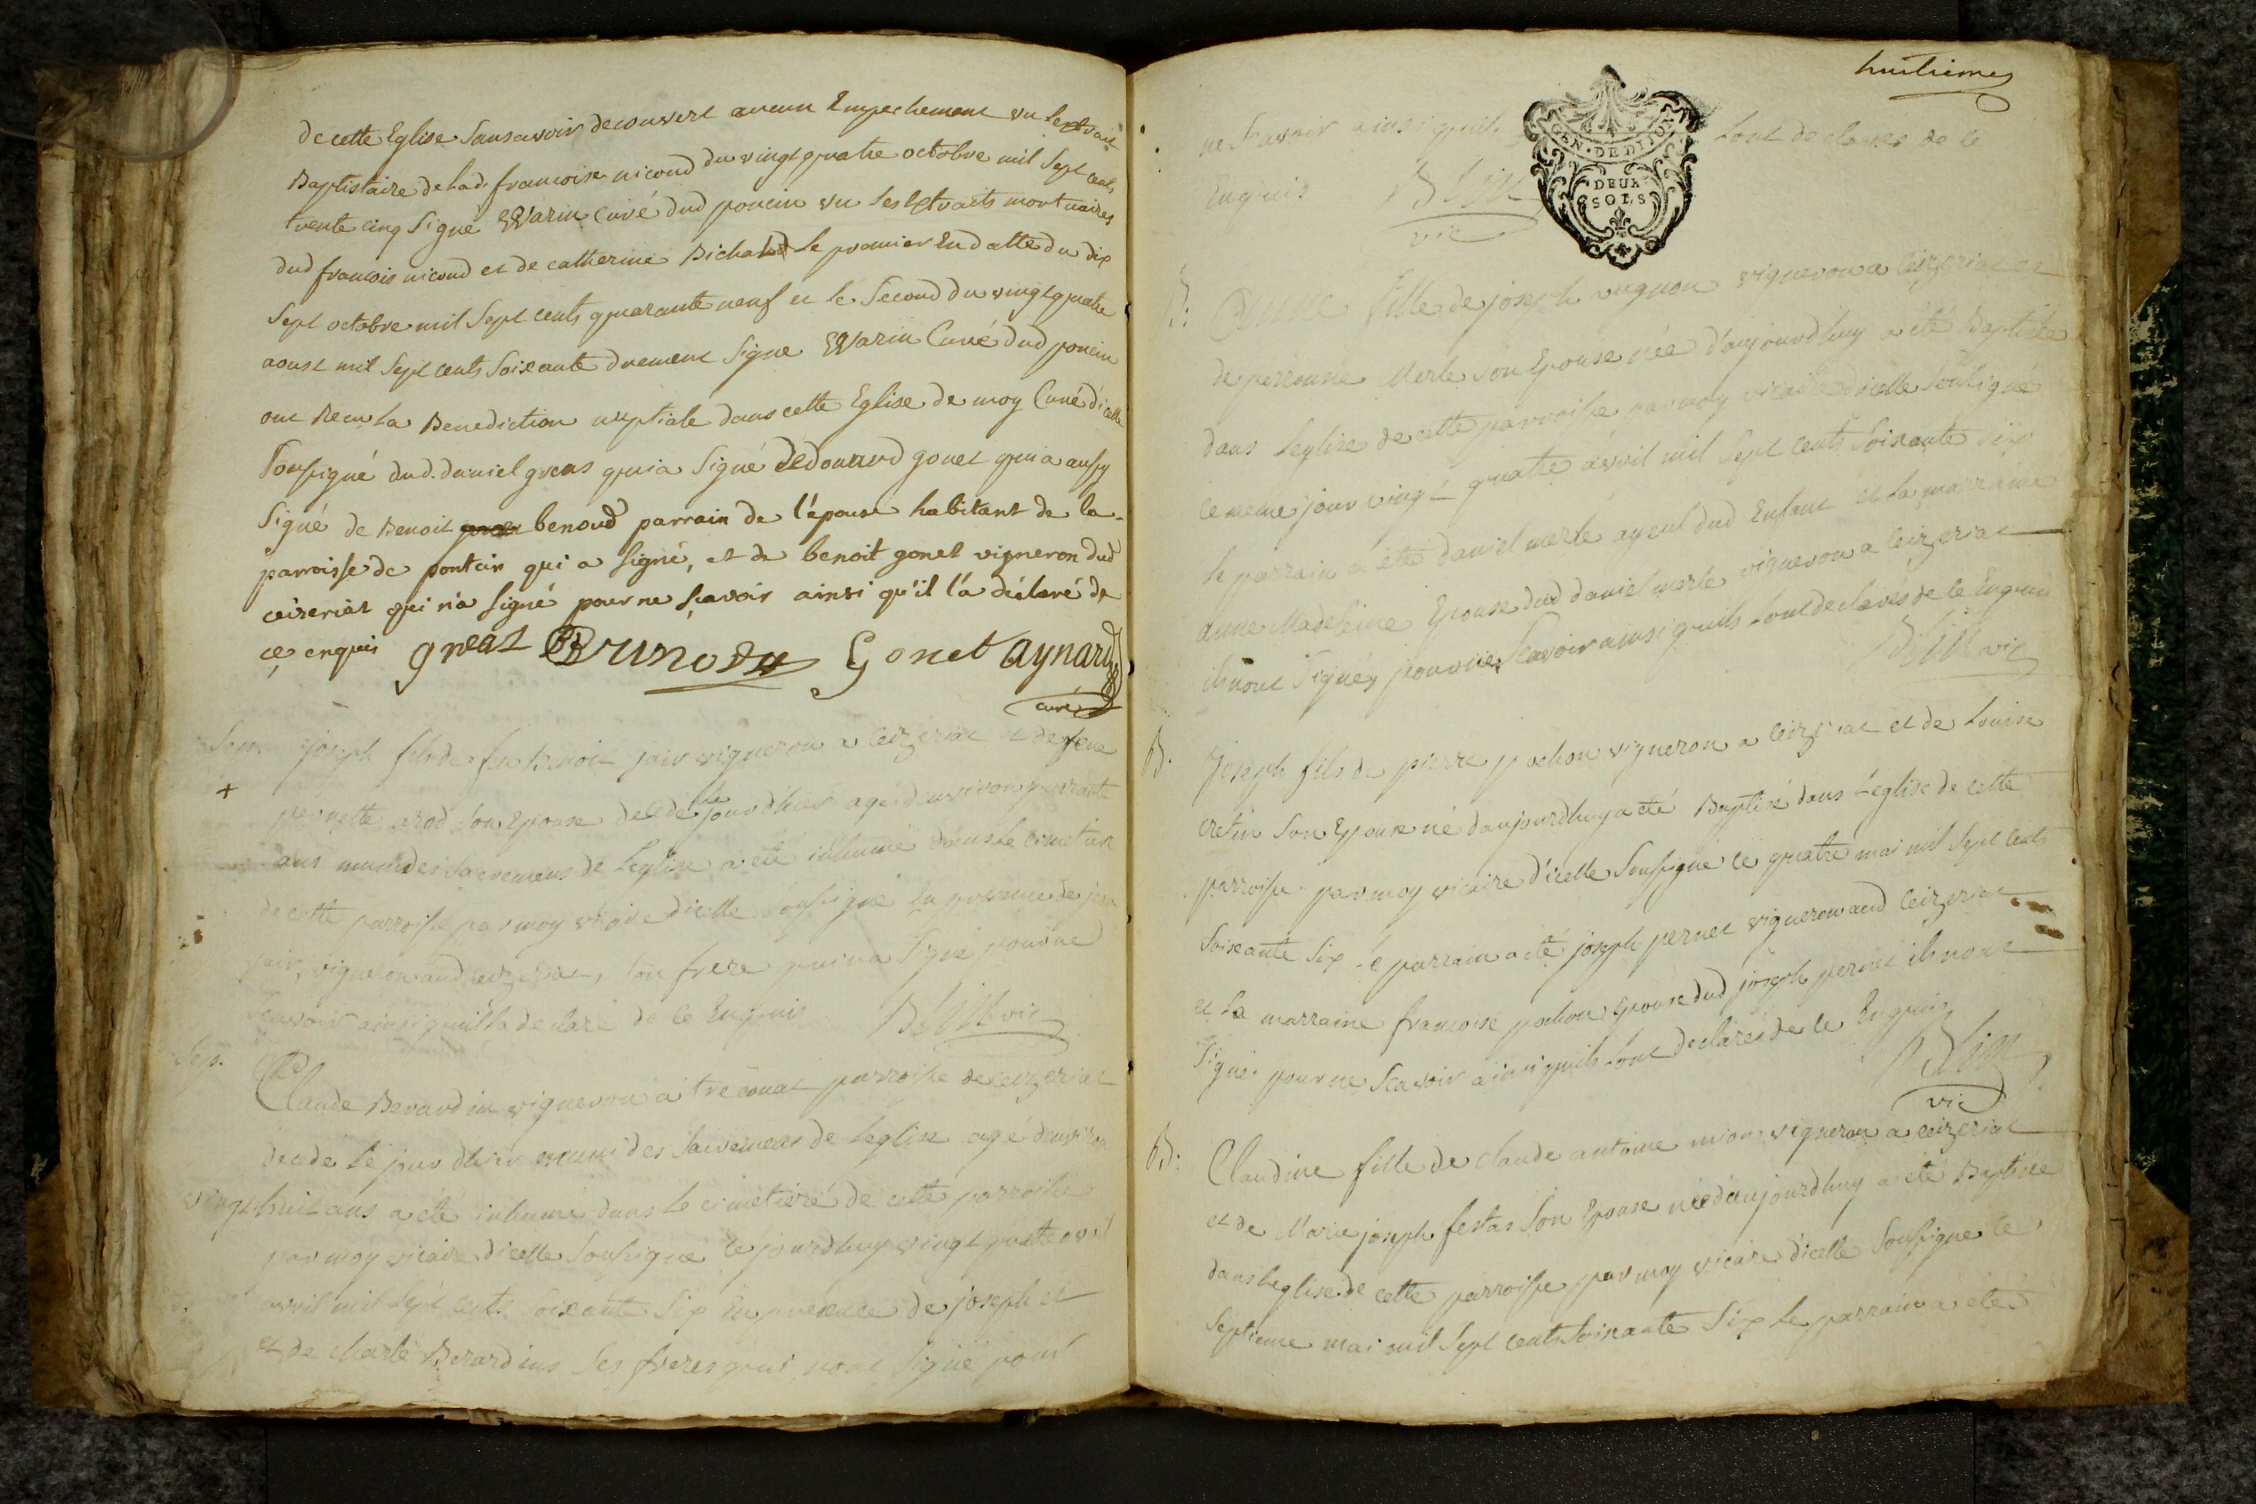 de cette Eglise sans avoir decouvert aucun Empechement vu l'extrait
Baptistaire de lad. francoise nicoud du vingt quatre octobre mil sept cents
trente cinq signé Warin curé dud poncin vu les extraits mortuaires
dud francois nicoud et de catherine Bichard le premier En datte du dix
sept octobre mil sept cents quarante neuf et le second du vingt quatre
aoust mil sept cents soixante duement signe Warin Curé dud poncin
ont Recu la Benediction nuptiale dans cette Eglise de moy Curé d'icelle
soussigné dud. daniel greas qui a signé dedouard gonet qui a aussy
signé de Benoit benoud parrain de l'épouse habitant de la
parroisse de qui a signé, et de benoit gonet vigneron dud
ceizeriat qui n'a signé pour ne sçavoir ainsi qu'il l'a déclaré de
ce enquis greas Gonet aynard
curé
Sep. joseph fils de feu Benoit jair vigneron a ceizeriat et de feue
+ pernette son Epouse decedé le jour d'hier agé d'environ
ans muni des sacremens de l'eglise a été inhumé dans le cimetiere
de cette parroisse par moy vicaire d'icelle soussigné En presence de
jair, vigneron aud ceizeriat, son frere qui n'a signé pour ne
scavoir ainsi quil la declaré de ce Enquis vic
Sep. Claude Berardin vigneron a treconat parroisse de ceizeriat
decedé le jour d'hier muni des sacremens de l'eglise agé d'environ
vingt huit ans a été inhumé dans le cimetiere de cette parroisse
par moy vicaire d'icelle soussigné ce jourdhuy vingt quatre avril
avril mil sept cents soixante six En presence de joseph et
et de Berardins ses freres qui n'ont signé pour
huitieme
GEN. DE DIJON
DEUX
SOLS
ne scavoir ainsi quils sont declarés de ce
Enquis
vic
B. fille de joseph vugnon vigneron a ceizeriat et
de perronne Merle son Epouse née d'aujourdhuy a été Baptisée
dans l'eglise de cette parroisse par moy vicaire d'icelle soussigné
ce meme jour vingt quatre avril mil sept cents soixante six
le parrain a été daniel merle ayeul dud Enfant et la marraine
anne Madeleine Epouse dud daniel merle vigneron a ceizeriat
ils n'ont signés pour ne scavoir ainsi quils sont declarés de ce Enquis
vic
B. Joseph fils de pierre pochon vigneron a ceizeriat et de Louise
cretin son Epouse né d'aujourdhuy a été Baptisé dans l'eglise de cette
parroisse par moy vicaire d'icelle soussigné ce quatre mai mil sept cents
soixante six le parrain a été joseph pernet vigneron aud ceizeriat
et la marraine francoise pochon Epouse dud joseph pernet ils n'ont
signé pour ne scavoir ainsi quils sont declarés de ce Enquis
vic
B. Claudine fille de claude antoine mion vigneron a ceizeriat
et de Marie joseph festas son Epouse née d'aujourdhuy a été Baptisée
dans l'eglise de cette parroisse par moy vicaire d'icelle soussigné le
septieme mai mil sept cents soixante six le parrain a été